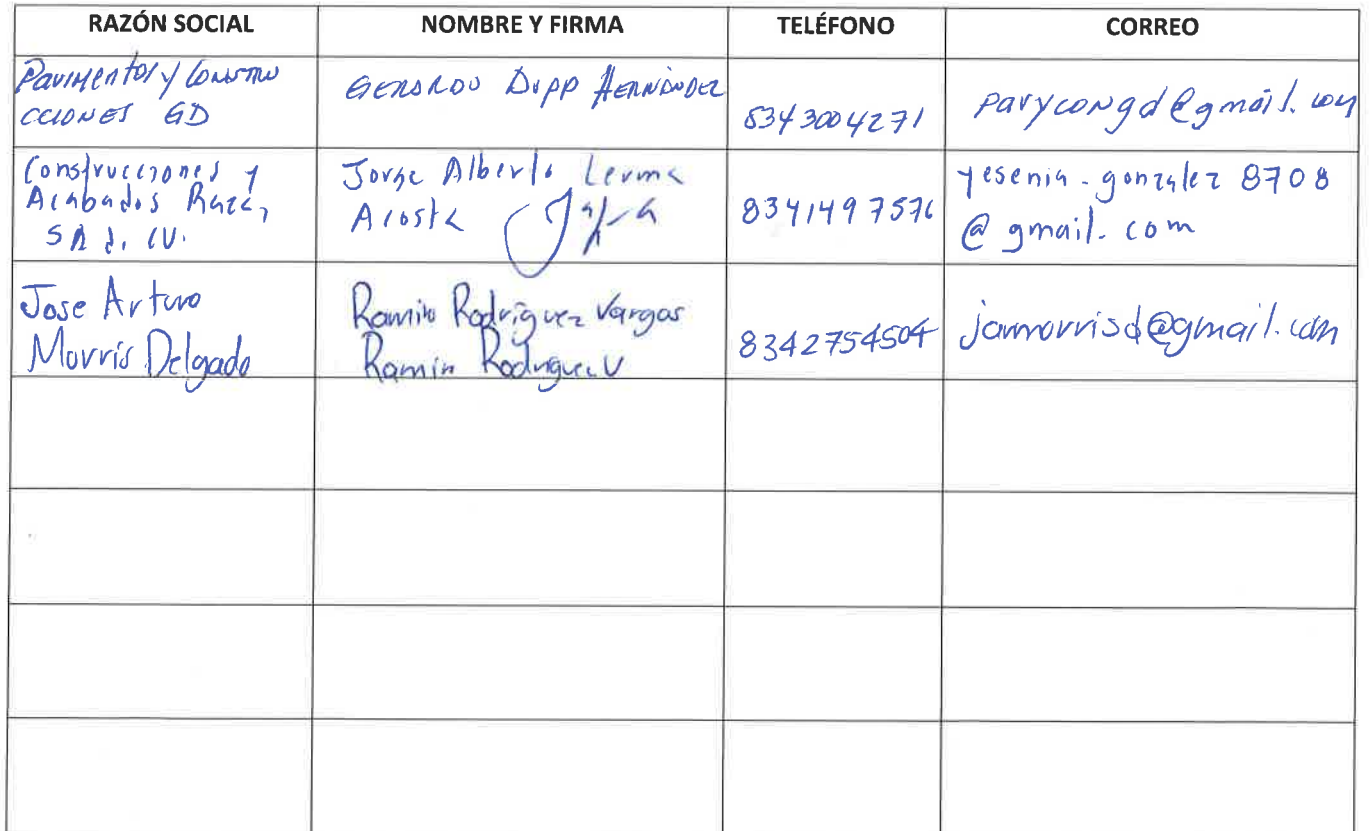 RAZÓN SOCIAL NOMBRE Y FIRMA TELÉFONO CORREO
Pavimentos y Constru
cciones GD
GERARDO DUPP HERNÁNDEZ
8343004271
parycongd@gmail.com
Construcciones y
Acabados
SA d. CV.
Jorge Alberto Lerma
Acosta
8341497576
yesenia-gonzalez 8708
@gmail.com
Jose Arturo
Morris Delgado
Ramiro Rodriguez Vargas
Ramiro Rodriguez V
8342754504
jamorrisd@gmail.com